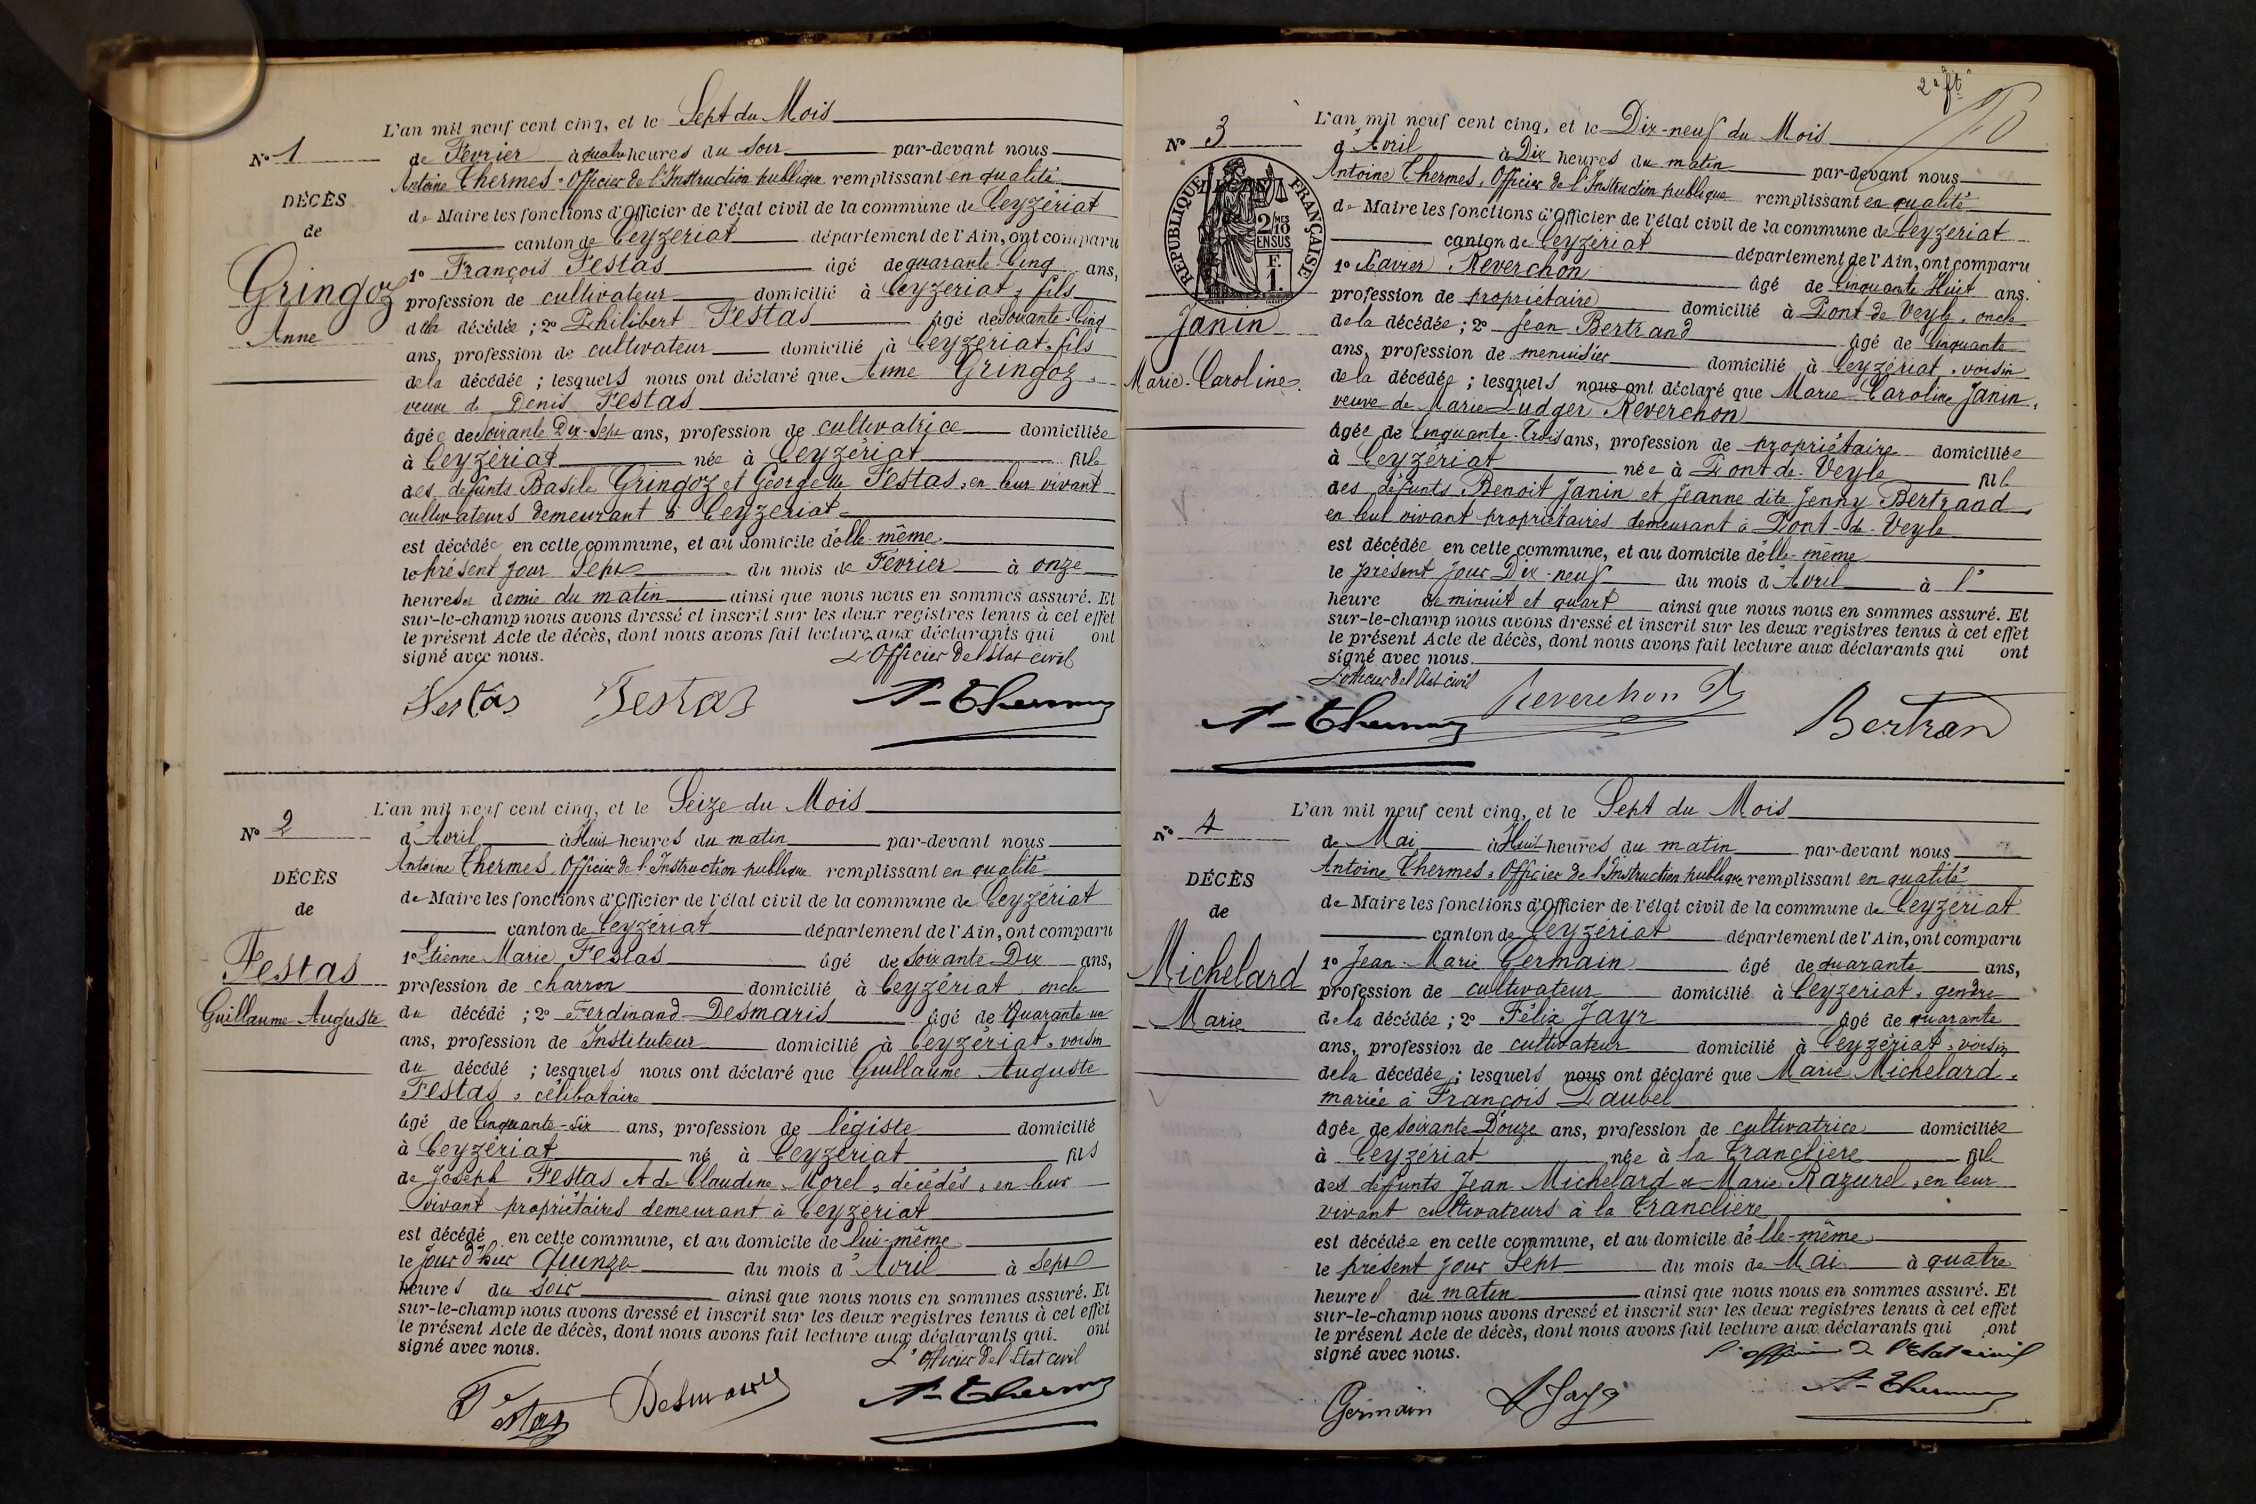 L'an mil neuf cent cinq, et le Sept du Mois
N° 1
de Février à quatre heures du soir par-devant nous
Antoine Thermes, Officier de l'Instruction publique remplissant en qualité
DÉCÈS
de Maire les fonctions d'Officier de l'état civil de la commune de Ceyzériat
de
canton de Ceyzériat département de l'Ain, ont comparu
1° François Festas âgé de quarante-Cinq ans,
Gringoz
profession de cultivateur domicilié à Ceyzériat, fils
Anne
de la décédée ; 2° Philibert Festas âgé de Soixante-Cinq
ans, profession de cultivateur domicilié à Ceyzériat, fils
de la décédée ; lesquels nous ont déclaré que Anne Gringoz,
veuve de Denis Festas
âgée de Soixante Dix-Sept ans, profession de cultivatrice domiciliée
à Ceyzériat née à Ceyzériat fille
des défunts Basile Gringoz et Georgette Festas, en leur vivant
cultivateurs demeurant à Ceyzériat
est décédée en cette commune, et au domicile d'elle-même
le présent jour Sept du mois de Février à onze
heures et demie du matin ainsi que nous nous en sommes assuré. Et
sur-le-champ nous avons dressé et inscrit sur les deux registres tenus à cet effet
le présent Acte de décès, dont nous avons fait lecture aux déclarants qui ont
signé avec nous.
L'Officier de l'Etat civil
Festas Festas A. Thermes
L'an mil neuf cent cinq, et le Seize du Mois
N° 2
d'Avril à Huit heures du matin par-devant nous
Antoine Thermes, Officier de l'Instruction publique remplissant en qualité
DÉCÈS
de Maire les fonctions d'Officier de l'état civil de la commune de Ceyzériat
de
canton de Ceyzériat département de l'Ain, ont comparu
Festas
1° Etienne Marie Festas âgé de Soixante-Dix ans,
profession de charron domicilié à Ceyzériat, oncle
Guillaume Auguste
du décédé ; 2° Ferdinand Desmaris âgé de Quarante un
ans, profession de Instituteur domicilié à Ceyzériat, voisin
du décédé ; lesquels nous ont déclaré que Guillaume Auguste
Festas, célibataire
âgé de Cinquante-Six ans, profession de légiste domicilié
à Ceyzériat né à Ceyzériat fils
de Joseph Festas et de Claudine Morel, décédés, en leur
vivant propriétaires demeurant à Ceyzériat
est décédé en cette commune, et au domicile de lui-même
le jour d'hier Quinze du mois d'Avril à Sept
heures du soir ainsi que nous nous en sommes assuré. Et
sur-le-champ nous avons dressé et inscrit sur les deux registres tenus à cet effet
le présent Acte de décès, dont nous avons fait lecture aux déclarants qui ont
signé avec nous.
L'officier de l'Etat civil
Festas Desmaris A. Thermes
2e ft
L'an mil neuf cent cinq, et le Dix-neuf du Mois
N° 3
d'Avril à Dix heures du matin par-devant nous
Antoine Thermes, Officier de l'Instruction publique remplissant en qualité
DÉCÈS
RÉPUBLIQUE FRANÇAISE
2/10 MES
EN SUS
F.
1.
de Maire les fonctions d'Officier de l'état civil de la commune de Ceyzériat
canton de Ceyzériat département de l'Ain, ont comparu
1° Xavier Reverchon âgé de Cinquante-Huit ans.
profession de propriétaire domicilié à Pont-de-Veyle, oncle
Janin
de la décédée ; 2° Jean Bertrand âgé de Cinquante
ans, profession de menuisier domicilié à Ceyzériat, voisin
Marie-Caroline
de la décédée ; lesquels nous ont déclaré que Marie Caroline Janin,
veuve de Marie Ludger Reverchon
âgée de Cinquante-Trois ans, profession de propriétaire domiciliée
à Ceyzériat née à Pont-de-Veyle fille
des défunts Benoit Janin et Jeanne dite Jenny Bertrand
en leur vivant propriétaires demeurant à Pont-de-Veyle
est décédée en cette commune, et au domicile d'elle-même
le présent jour Dix-neuf du mois d'Avril à l'
heure de minuit et quart ainsi que nous nous en sommes assuré. Et
sur-le-champ nous avons dressé et inscrit sur les deux registres tenus à cet effet
le présent Acte de décès, dont nous avons fait lecture aux déclarants qui ont
signé avec nous.
L'officier de l'Etat civil
A. Thermes Reverchon Bertran
L'an mil neuf cent cinq, et le Sept du Mois
N° 4
de Mai à Huit heures du matin par-devant nous
Antoine Thermes, Officier de l'Instruction publique remplissant en qualité
DÉCÈS
de Maire les fonctions d'Officier de l'état civil de la commune de Ceyzériat
de
canton de Ceyzériat département de l'Ain, ont comparu
Michelard
1° Jean-Marie Germain âgé de quarante ans,
profession de cultivateur domicilié à Ceyzériat, gendre
Marie
de la décédée ; 2° Félix Jayr âgé de quarante
ans, profession de cultivateur domicilié à Ceyzériat, voisin
de la décédée ; lesquels nous ont déclaré que Marie Michelard,
mariée à François Laubel
âgée de Soixante Douze ans, profession de cultivatrice domiciliée
à Ceyzériat née à la Tranclière fille
des défunts Jean Michelard et Marie Razurel, en leur
vivant cultivateurs à la Tranclière
est décédée en cette commune, et au domicile d'elle-même
le présent jour Sept du mois de Mai à quatre
heures du matin ainsi que nous nous en sommes assuré. Et
sur-le-champ nous avons dressé et inscrit sur les deux registres tenus à cet effet
le présent Acte de décès, dont nous avons fait lecture aux déclarants qui ont
signé avec nous.
l'officier de l'Etat civil
Germain A. Thermes